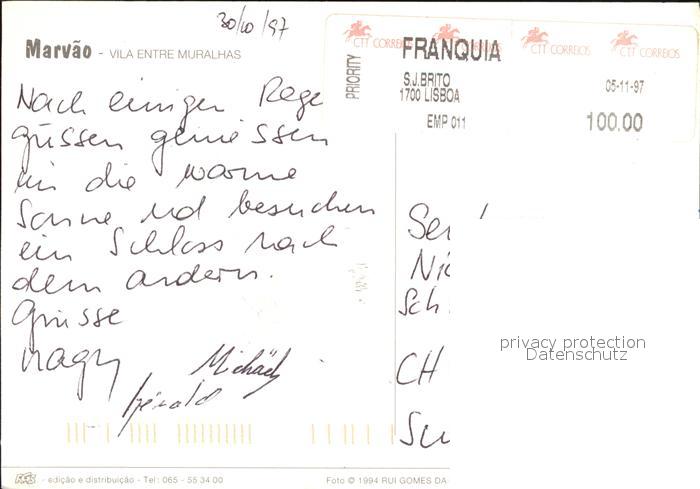 30/10/97
Marvão - VILA ENTRE MURALHAS
PRIORITY
CTT CORREIOS
FRANQUIA
CTT CORREIOS
S.J.BRITO
1700 LISBOA
05-11-97
EMP 011
100.00
Nach einigen Rege
güssen geniessen
wir die warme
Sonne und besuchen
ein Schloss nach
dem andern.
Grüsse
Michäel
Gérald
Ser
Nic
Sch
CH
privacy protection
Datenschutz
- edição e distribuição - Tel: 065 - 55 34 00
Foto © 1994 RUI GOMES DA